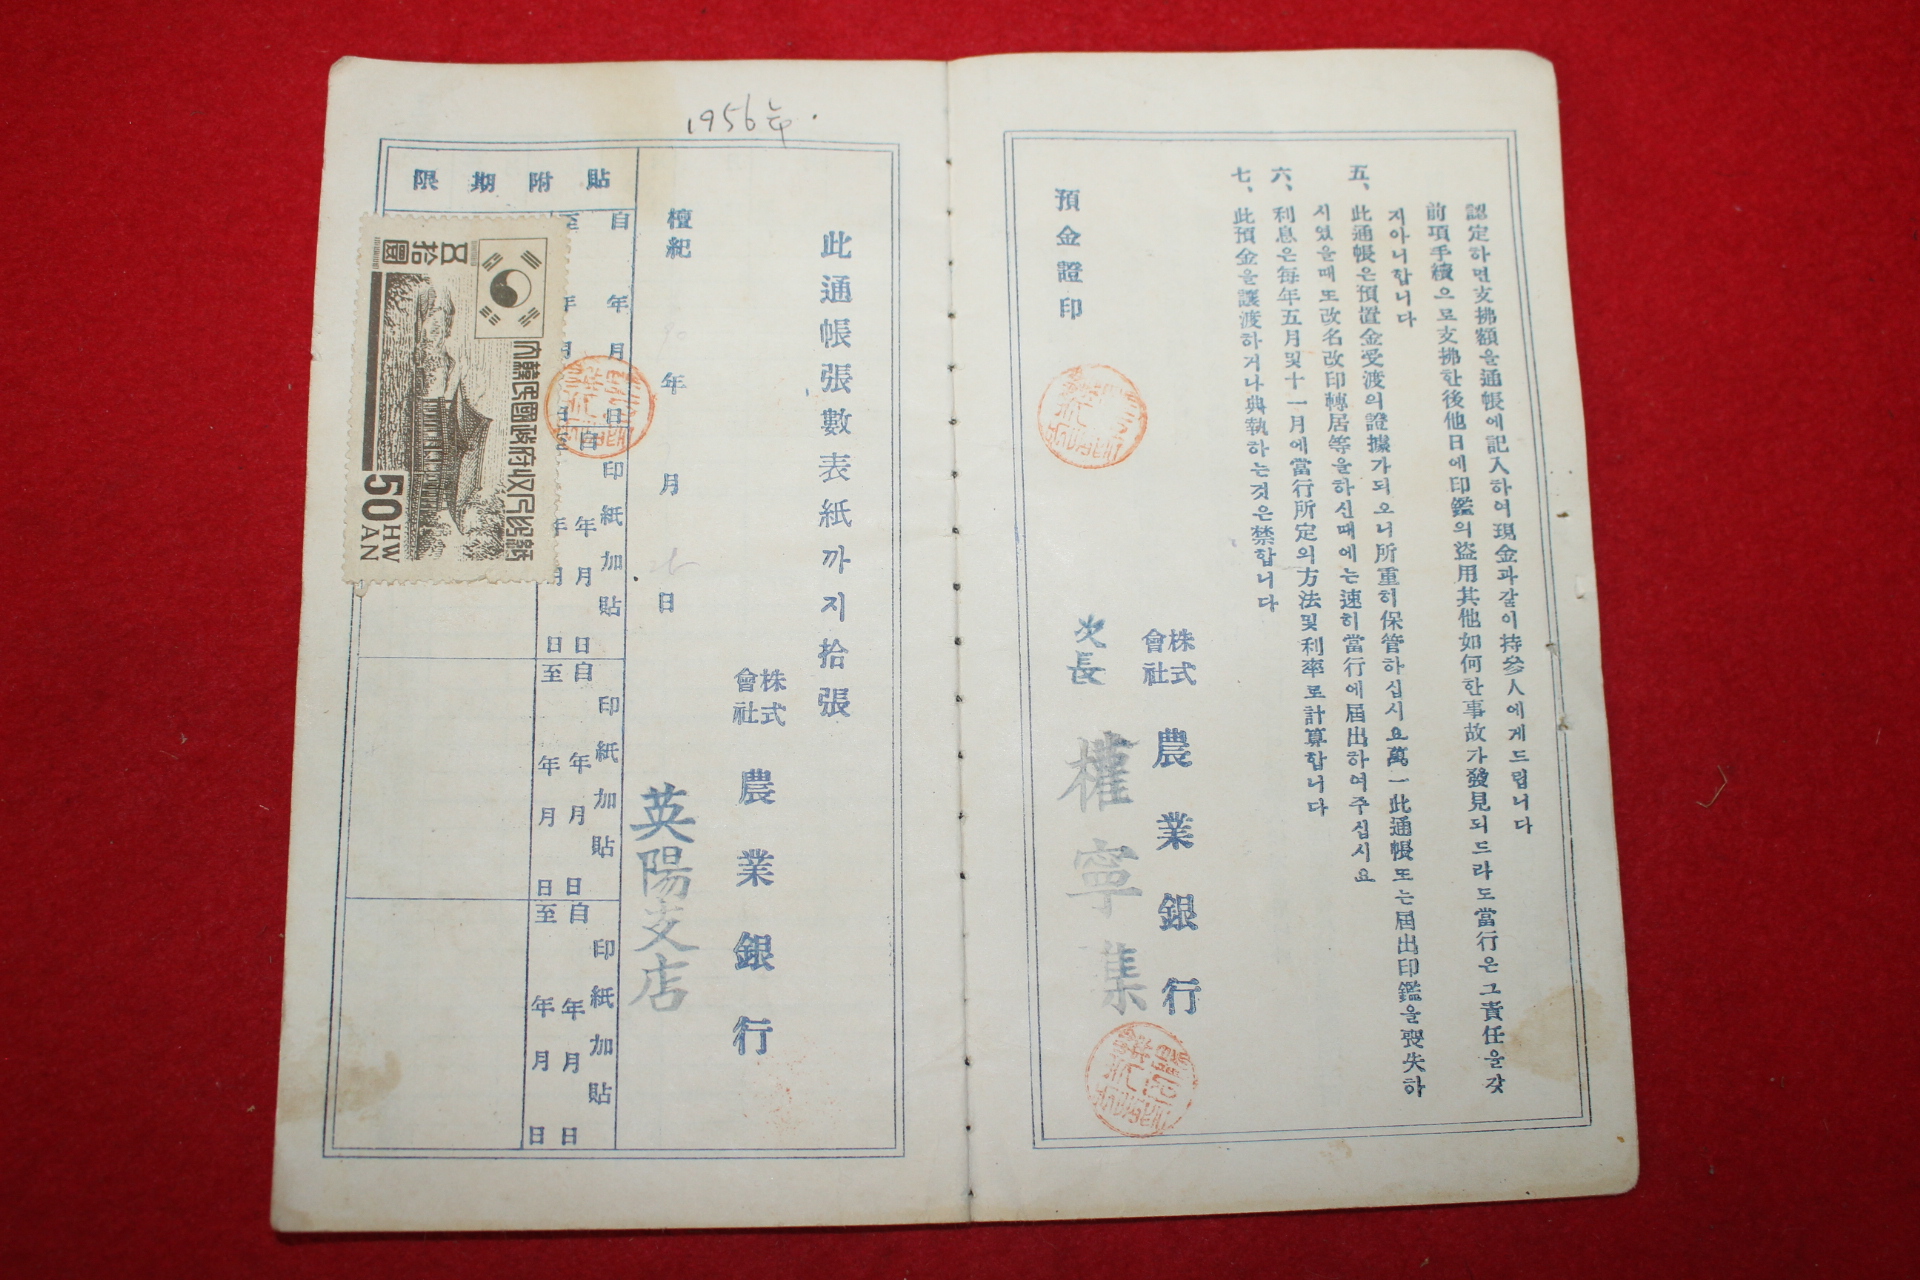 認定하면支拂額을通帳에記入하여現金과같이持參人에게드립니다
前項手續으로支拂한後他日에印鑑의盜用其他如何한事故가發見되드라도當行은그責任을갖
지아니합니다
五、此通帳은預置金受渡의證據가되오니所重히保管하십시요萬一此通帳또는屆出印鑑을喪失하
시였을때또改名改印轉居等을하신때에는速히當行에屆出하여주십시요
六、利息은每年五月및十一月에當行所定의方法및利率로計算합니다
七、此預金을讓渡하거나典執하는것은禁합니다
株式會社 農業銀行
次長 權寧集
預金證印
1956年.
此通帳張數表紙까지拾張
株式會社 農業銀行
英陽支店
檀紀 年 月 日
貼附期限
自 年 月 日
至 年 月 日
印紙加貼
自 年 月 日
至 年 月 日
印紙加貼
自 年 月 日
至 年 月 日
印紙加貼
自 年 月 日
至 年 月 日
五拾圜
大韓民國政府收入印紙
50 HWAN